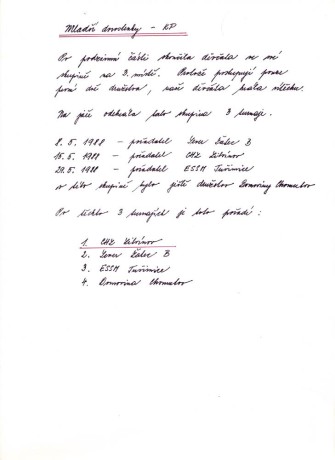 Mladší dorostenky - KP
Po podzimní části skončila děvčata ve své
skupině na 3. místě. Protože postupují pouze
první dvě družstva, naše děvčata hrála útěchu.
Na jaře odehrála tato skupina 3 turnaje.
8. 5. 1988 - pořadatel Sever Žatec B
15. 5. 1988 - pořadatel CHZ Litvínov
29. 5. 1988 - pořadatel ESSM Tušimice
v této skupině bylo ještě družstvo Domoviny Chomutov
Po těchto 3 turnajích je toto pořadí :
1. CHZ Litvínov
2. Sever Žatec B
3. ESSM Tušimice
4. Domovina Chomutov